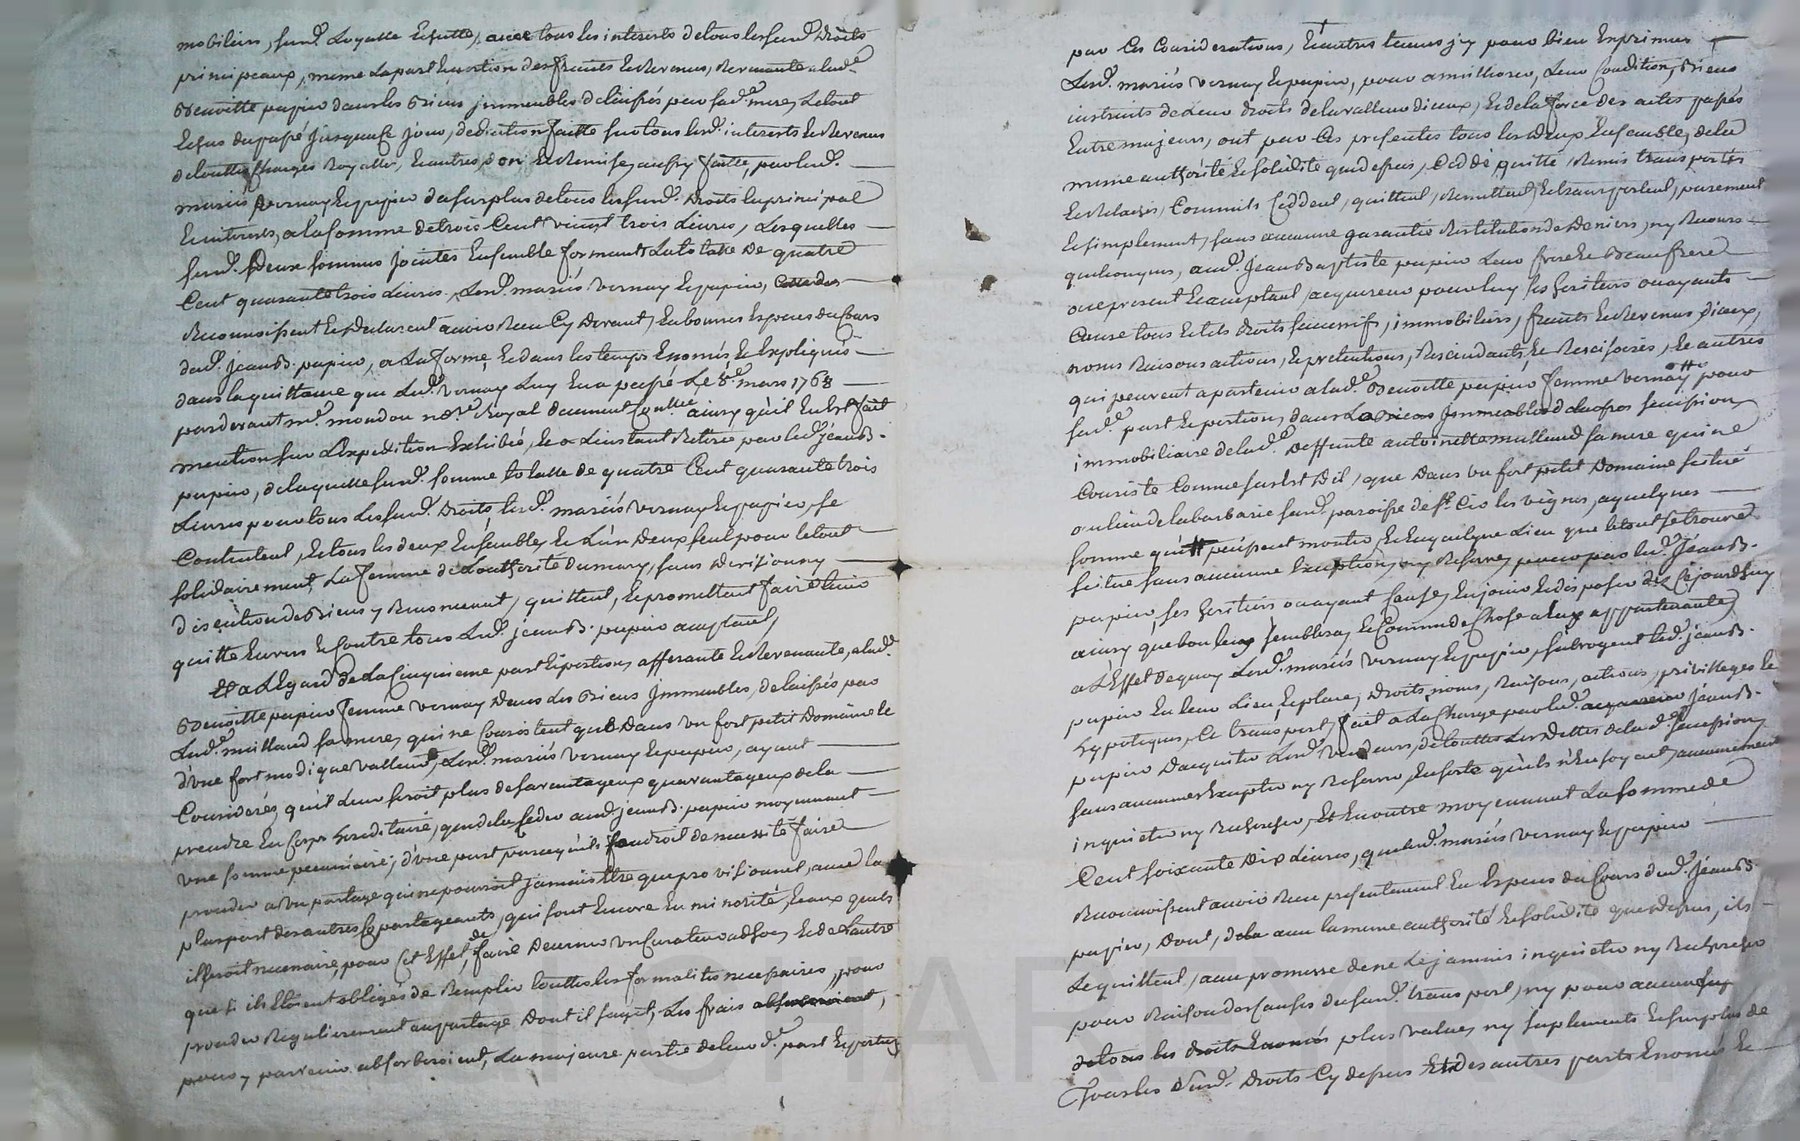 mobiliers, susd. Loyalle Echutte, avec tous les interests de tous lesusd. Droits
principaux, meme La part Ex portion des fruits Et Revenus, Revenante a lad.e
Benoitte papin dans les Biens jmmeubles delaissés par sad.e mere, Le tout
Echus du passé jusqua ce jour, deduction faitte sur tous lesd. interests Et Revenus
de touttes Charges Royalles, Et autres, don Et Remise, aussy faitte, par lesd.
mariés Vernay Et papin du surplus de tous lesusd. Droits En principal
Et interests, a la somme de trois Cent vingt trois Livres, Lesquelles
susd. Deux sommes jointes Ensemble forment La totalle De quatre
Cent quarante trois Livres. Lesd. mariés Vernay Et papin,
Reconnoissent Et Declarent avoir Recu Cy Devant, En bonnes Especes du Cours
dud. jean B. papin, a La forme, Et dans les temps Enoncés Et Expliqués
dans la quittance que Led. Vernay Luy En a passé Le 8.e mars 1768
pardevant m.e mondon no.re Royal duement Conttlée ainsy qu'il En Est fait
mention sur L'Expedition Exhibée, Et a L'instant Retirée par led. jean B.
papin, de laquelle susd. somme totalle de quatre Cent quarante trois
Livres pour tous Lesusd. Droits lesd. mariés Vernay Et papin, se
Contentent, Et tous les deux Ensemble, Et L'un Deux seul pour le tout
solidairement, La femme de L'authorité du mary, sans Division ny
discution de Biens y Renonceant, quittent, Et promettent faire tenir
quitte Envers Et Contre tous Led. jean B. papin acceptant,
Et a L'Egard de La Cinquieme part Et portion afferante Et Revenante, a lad.e
Benoitte papin femme Vernay Dans Les Biens jmmeubles, delaissés par
Lad.e mulliaud sa mere, qui ne Consistent que Dans un fort petit Domaine Et
d'une fort modique valleur, Lesd. mariés Vernay Et papin, ayant
Considerés, qu'il Leur seroit plus desavantageux qu'avantageux de la
prendre En Corps hereditaire, que de la Ceder aud. jean B. papin moyennant
une somme pecuniaire, d'une part parce qu'il faudroit de necessité faire
proceder a un partage qui ne pourroit jamais Etre que provisionnel, avec la
pluspart des autres Co partageants, qui sont Encore En minorité, Et aux quels
il seroit necessaire, pour Cet Effet, de faire Decerner un Curateur adhoc, Et de L'autre
que s'ils Etoient obligés de Remplir touttes les formalités necessaires, pour
proceder Regulierement au partage Dont il s'agit, Les frais
pour y parvenir absorberoient, La majeure partie de leur d.e part Et portion
par Ces Considerations, Et autres tenues jcy pour bien Exprimées
Lesd. mariés Vernay Et papin, pour ameilliorer, Leur Condition, Biens
instruits de Leur droits de la valleur diceux, Et de la force des actes passés
Entre majeurs, ont par Ces presentes tous les deux Ensemble, de la
meme authorité Et solidité que dessus, Cedé quitté, Remis transportés
Et Relachés, Comme ils Ceddent, quittent, Remettent, Et transportent, purement
Et simplement, sans aucune garantie Restitution de Deniers, ny Recours
quelconques, aud. Jean Baptiste papin Leur frere Et Beaufrere
icy present Et acceptant, acquereur pour luy ses heritiers ou ayants
Cause tous Et tels droits successifs, immobiliers, fruits Et Revenus diceux,
noms Raisons actions, Et pretentions, Rescindants, Et Rescisoires, Et autres
qui peuvent apartenir a lad.e Benoitte papin femme Vernay pour
sad.e part Et portion, dans Les Biens jmmeubles de la succession
immobiliaire de lad.e Deffunte antoinette mulliaud sa mere qui ne
Consiste Comme jl Est Dit, que Dans un fort petit Domaine scitué
au lieu de la barbarie susd. paroisse de S.t Cir les vignes, a quelques
somme qu'il puissent monter, Et En quelque Lieu que le tout se trouve
scitué sans aucune Exception, ny Reserve, pour par led. Jean B.
papin, ses heritiers ou ayant Cause, En jouir Et disposer des Cejourdhuy
ainsy que bon leur semblera, Et Comme de Chose a Eux appartenante,
a L'Effet de quoy Lesd. mariés Vernay Et papin, subrogent led. jean B.
papin En leur Lieu Et place, Droits, noms, Raisons, actions, privilleges Et
hypoteques, Ce transport, fait a la Charge par led. acquereur jean B.
papin D'acquitter Lesd. Vendeurs, de touttes Les Dettes de lad.e succession,
sans aucunes Exception ny Reserve, En sorte qu'ils n'En soyent aucunement
inquietés ny Recherchés, Et En outre moyennant La somme de
Cent soixante Dix Livres, que lesd. mariés Vernay Et papin
Reconnoissent avoir Recu presentement En Especes du Cours dud. jean B.
papin, Dont, de la meme authorité Et solidité que Dessus, ils
Le quittent, avec promesse de ne Le jamais inquieter ny Rechercher
pour Raison des Causes du susd. transport, ny pour aucun
de tous les droits Enoncés plus values, ny suplements Et surplus de
Tous les susd. Droits Cy dessus Et des autres parts Enoncés Et